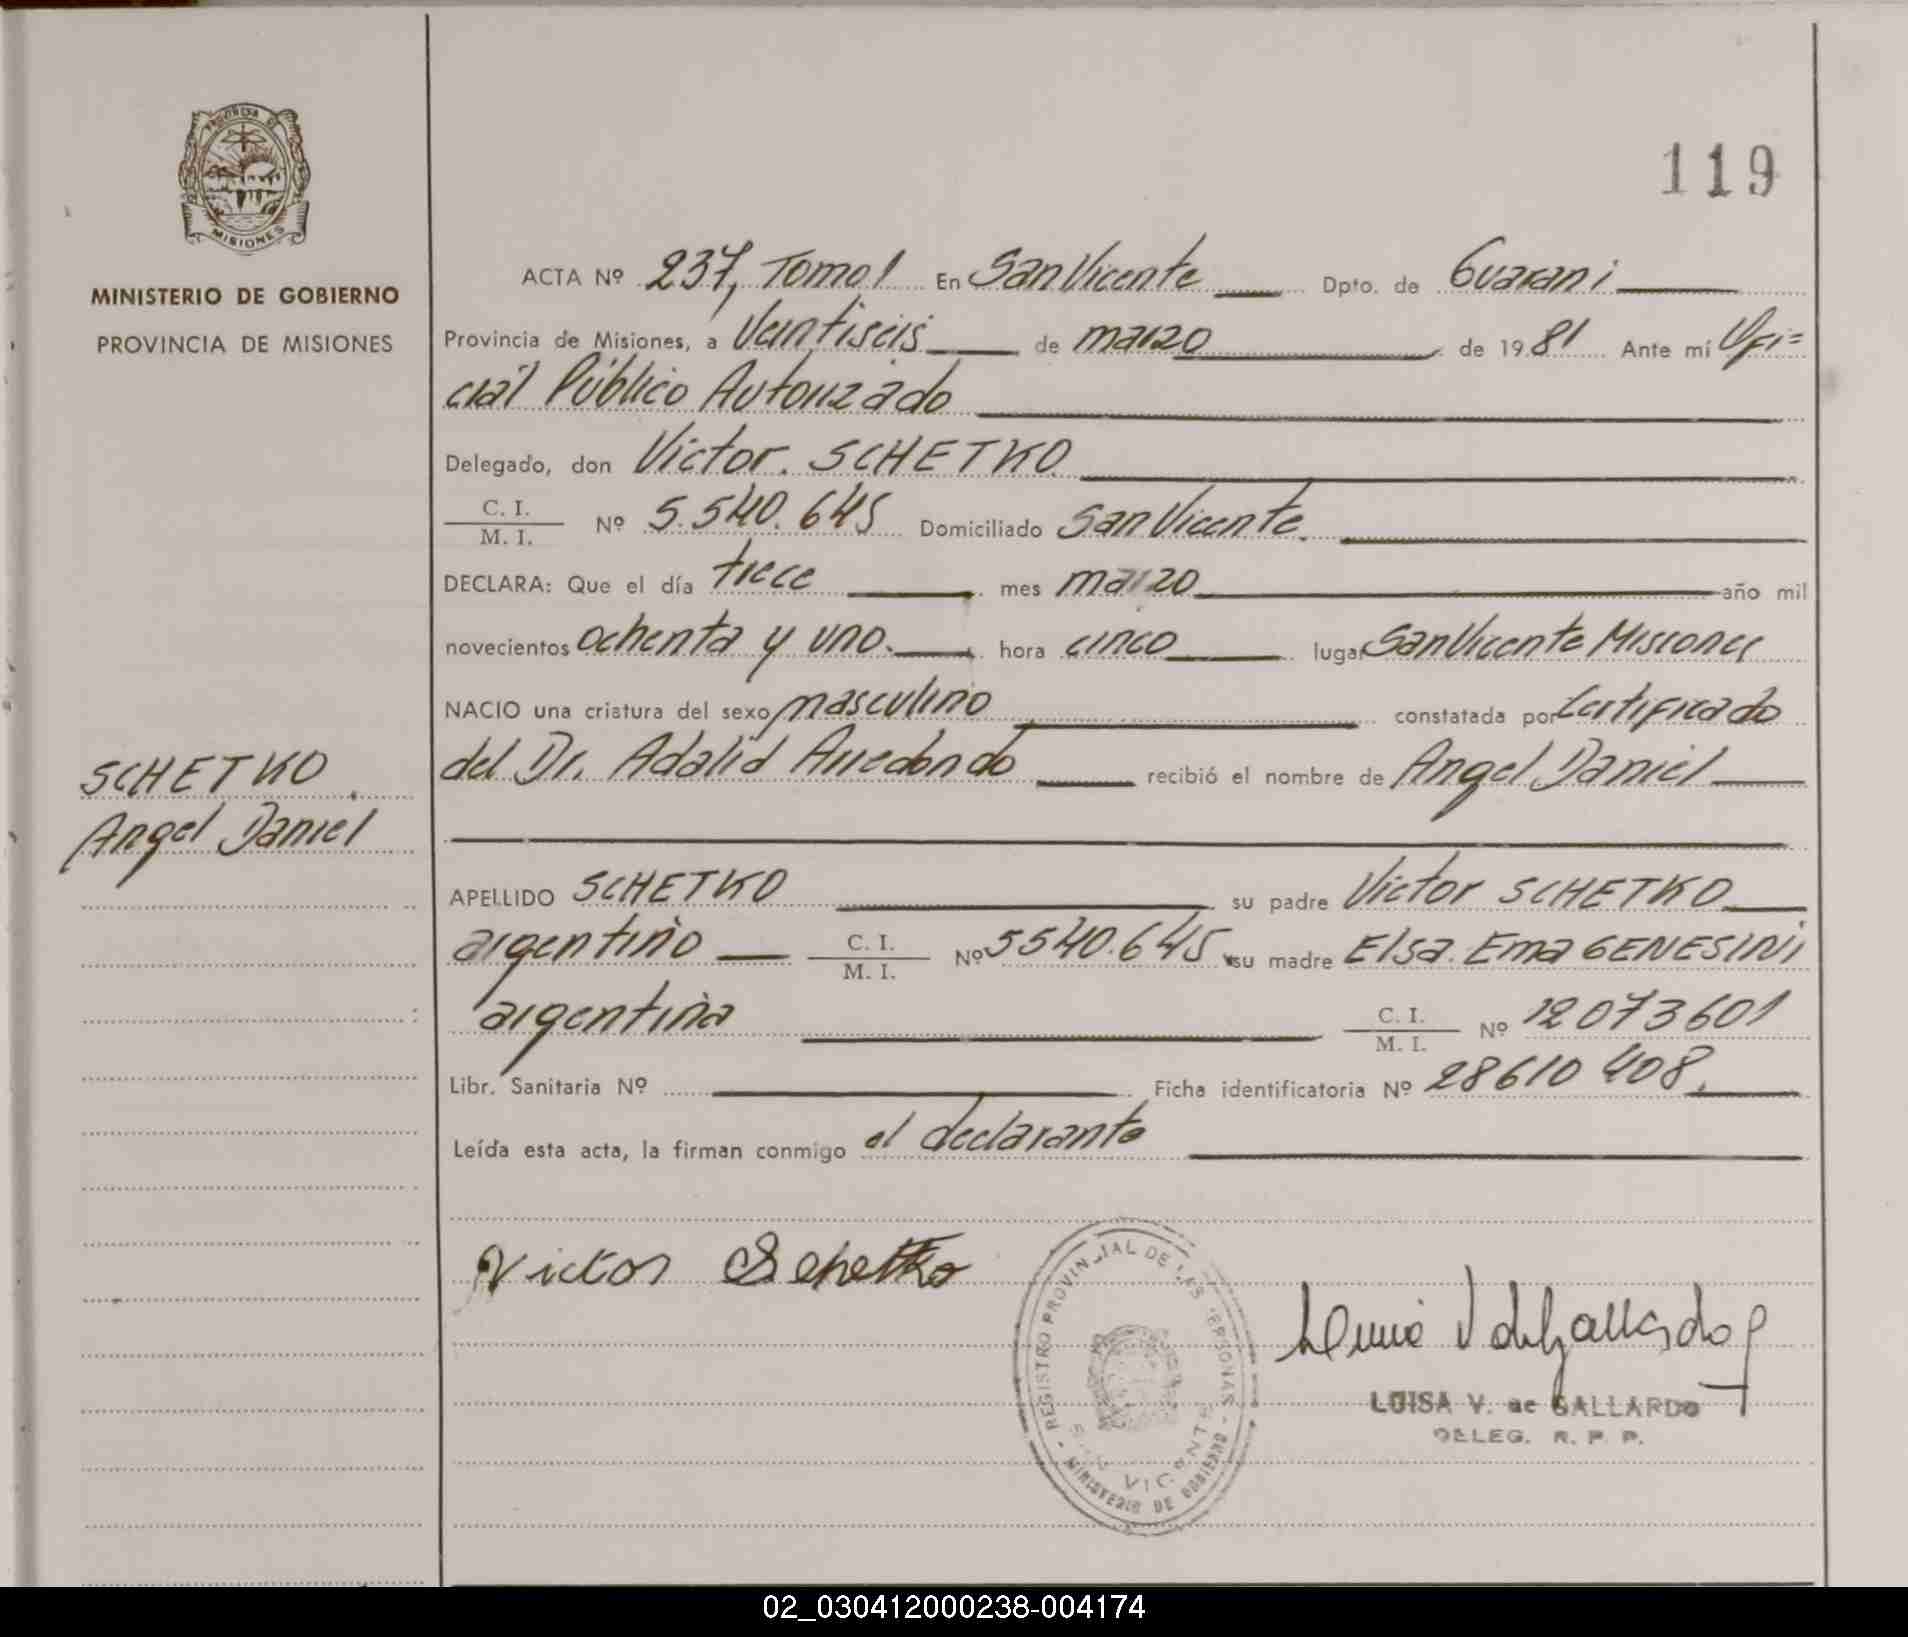 PROVINCIA DE
MISIONES
MINISTERIO DE GOBIERNO
PROVINCIA DE MISIONES
SCHETKO
Angel Daniel
119
ACTA Nº 237, Tomo I En San Vicente Dpto. de Guarani
Provincia de Misiones, a Veintiseis de marzo de 1981 Ante mí Ofi=
cial Público Autorizado
Delegado, don Victor. SCHETKO
C. I. / M. I. Nº 5.540.645 Domiciliado San Vicente.
DECLARA: Que el día trece mes marzo año mil
novecientos ochenta y uno. hora cinco lugar San Vicente Misiones
NACIO una criatura del sexo masculino constatada por Certificado
del Dr. Adalid Arredondo recibió el nombre de Angel Daniel
APELLIDO SCHETKO su padre Victor SCHETKO
argentino C. I. / M. I. Nº 5540.645 su madre Elsa Ema GENESINI
argentina C. I. / M. I. Nº 12073601
Libr. Sanitaria Nº Ficha identificatoria Nº 28610408.
Leída esta acta, la firman conmigo el declarante
Victor Schetko
REGISTRO PROVINCIAL DE LAS PERSONAS
SAN VICENTE
MINISTERIO DE GOBIERNO
LUISA V. de GALLARDO
DELEG. R. P. P.
02_030412000238-004174